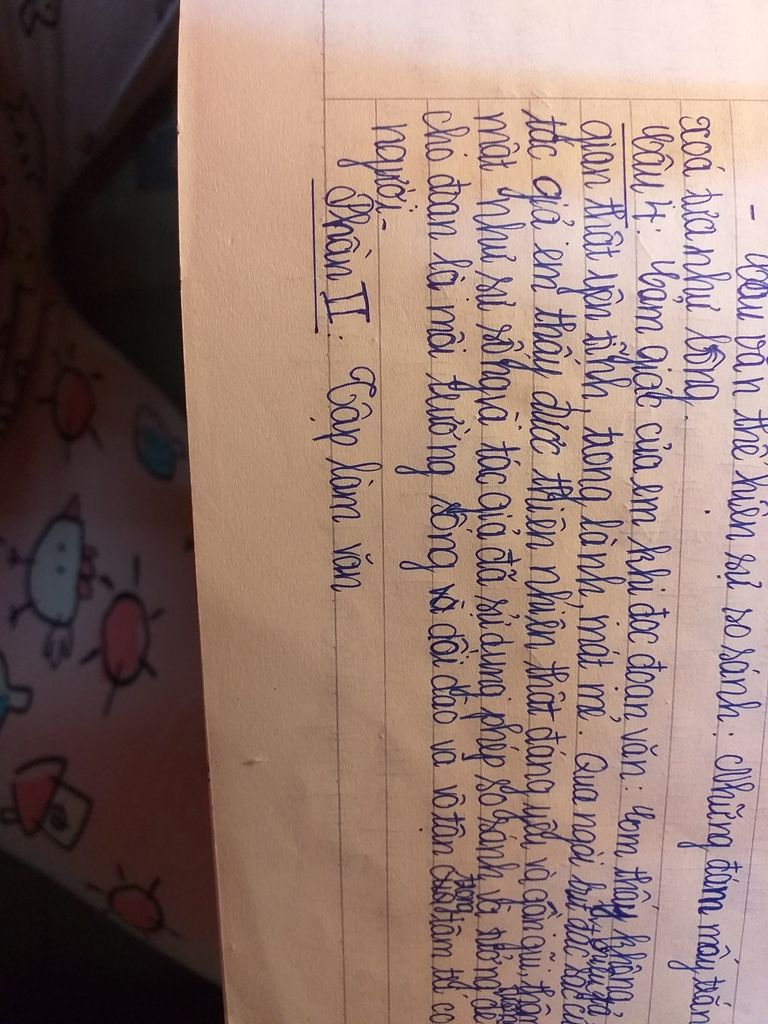 - Câu văn thể hiện sự so sánh. Những đám mây trắn
xoá tựa như bông.
Câu 4: Cảm giác của em khi đọc đoạn văn: Em thấy không
gian thật yên tĩnh, trong lành, mát mẻ. Qua ngòi bút đặc sắc
tác giả em thấy được thiên nhiên thật đáng yêu và gần gũi, thân
mật như sự sống và tác giả đã sử dụng phép so sánh
cho đoạn là môi trường sống và dồi dào và vô tận trong tâm trí co
người.
Phần II: Tập làm văn